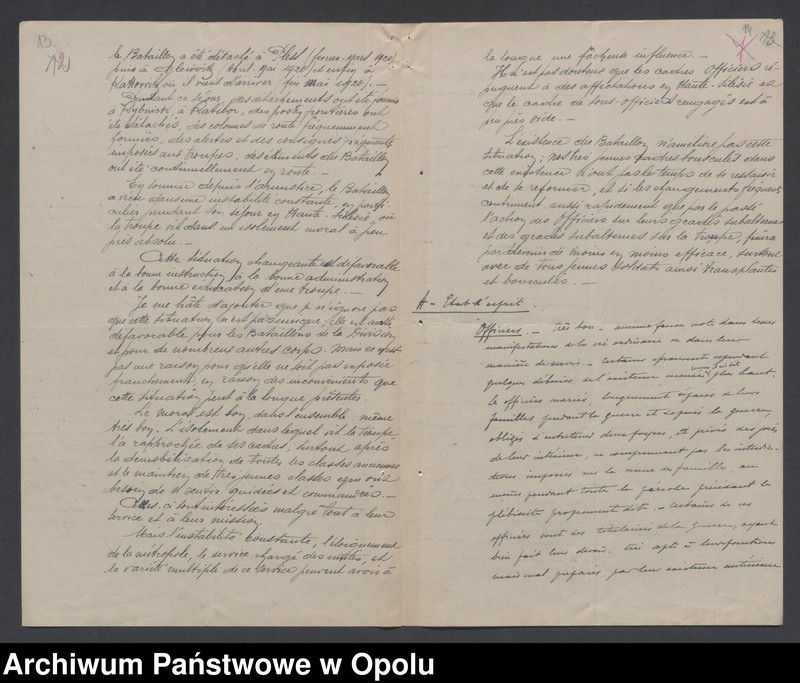 13
12
le Bataillon a été détaché à Pless (février-Mars 1920)
puis à Gleiwitz (Avril-Mai 1920) et enfin à
Kattowitz où il vient d'arriver (fin Mai 1920). -
Pendant ce séjour, des détachements ont été fournis
à Rybnick, à Ratibor, des postes frontières ont
été détachés, des colonnes de route fréquemment
formées, des alertes et des consignes fréquentes
imposées aux troupes, des éléments du Bataillon
ont été continuellement en route. -
En somme depuis l'armistice, le Bataillon
a vécu dans une instabilité constante, en parti-
culier pendant son séjour en Haute-Silésie, où
la troupe vit dans un isolement moral à peu
près absolu. -
Cette situation changeante est défavorable
à la bonne instruction, à la bonne administration
et à la bonne éducation d'une troupe. -
Je me hâte d'ajouter que je n'ignore pas
que cette situation n'est pas unique, elle est aussi
défavorable pour les Bataillons de la Division
et pour de nombreux autres corps. Mais ce n'est
pas une raison pour qu'elle ne soit pas exposée
franchement, en raison des inconvénients que
cette situation peut à la longue présenter.
Le moral est bon, dans l'ensemble, même
très bon. L'isolement dans lequel vit la troupe,
l'a rapprochée de ses cadres, surtout après
la démobilisation de toutes les classes anciennes
et le maintien de très jeunes classes qui ont
besoin de se sentir guidées et commandées. -
Celles-ci sont intéressées malgré tout à leur
service et à leur mission.
Mais l'instabilité constante, l'éloignement
de la métropole, le service chargé des unités, et
la variété multiple de ce service peuvent avoir à
14
13
la longue une fâcheuse influence. -
Il n'est pas douteux que les cadres Officiers ré-
pugnent à des affectations en Haute-Silésie et
que le cadre de sous-officiers rengagés est à
peu près vide. -
L'existence du Bataillon n'améliore pas cette
situation; nos très jeunes cadres bousculés dans
cette existence n'ont pas le temps de se ressaisir
et de se reformer, et si les changements fréquents
continuent aussi rapidement que par le passé
l'action des Officiers sur leurs gradés subalternes
et des gradés subalternes sur la troupe, finira
par devenir de moins en moins efficace, surtout
avec de tous jeunes soldats ainsi transplantés
et bousculés. -
A - Etat d'esprit.
Officiers. - Très bon - aucune fausse note dans leurs
manifestations de la vie ordinaire ou dans leur
manière de servir. - Certains éprouvent cependant
quelques déboires de l'existence menée plus haut.
les officiers mariés, longuement séparés de leurs
familles pendant la guerre et depuis la guerre,
obligés d'entretenir deux foyers, et privés des joies
de leur intérieur, ne comprennent pas les interdic-
tions imposées sur la venue des familles, au
moins pendant toute la période précédant le
plébiscite proprement dit. - Certains de ces
officiers sont des titularisés de la guerre, ayant
bien fait leur devoir, très apte à leurs fonctions
mais mal préparés par leur existence antérieure
Archiwum Państwowe w Opolu